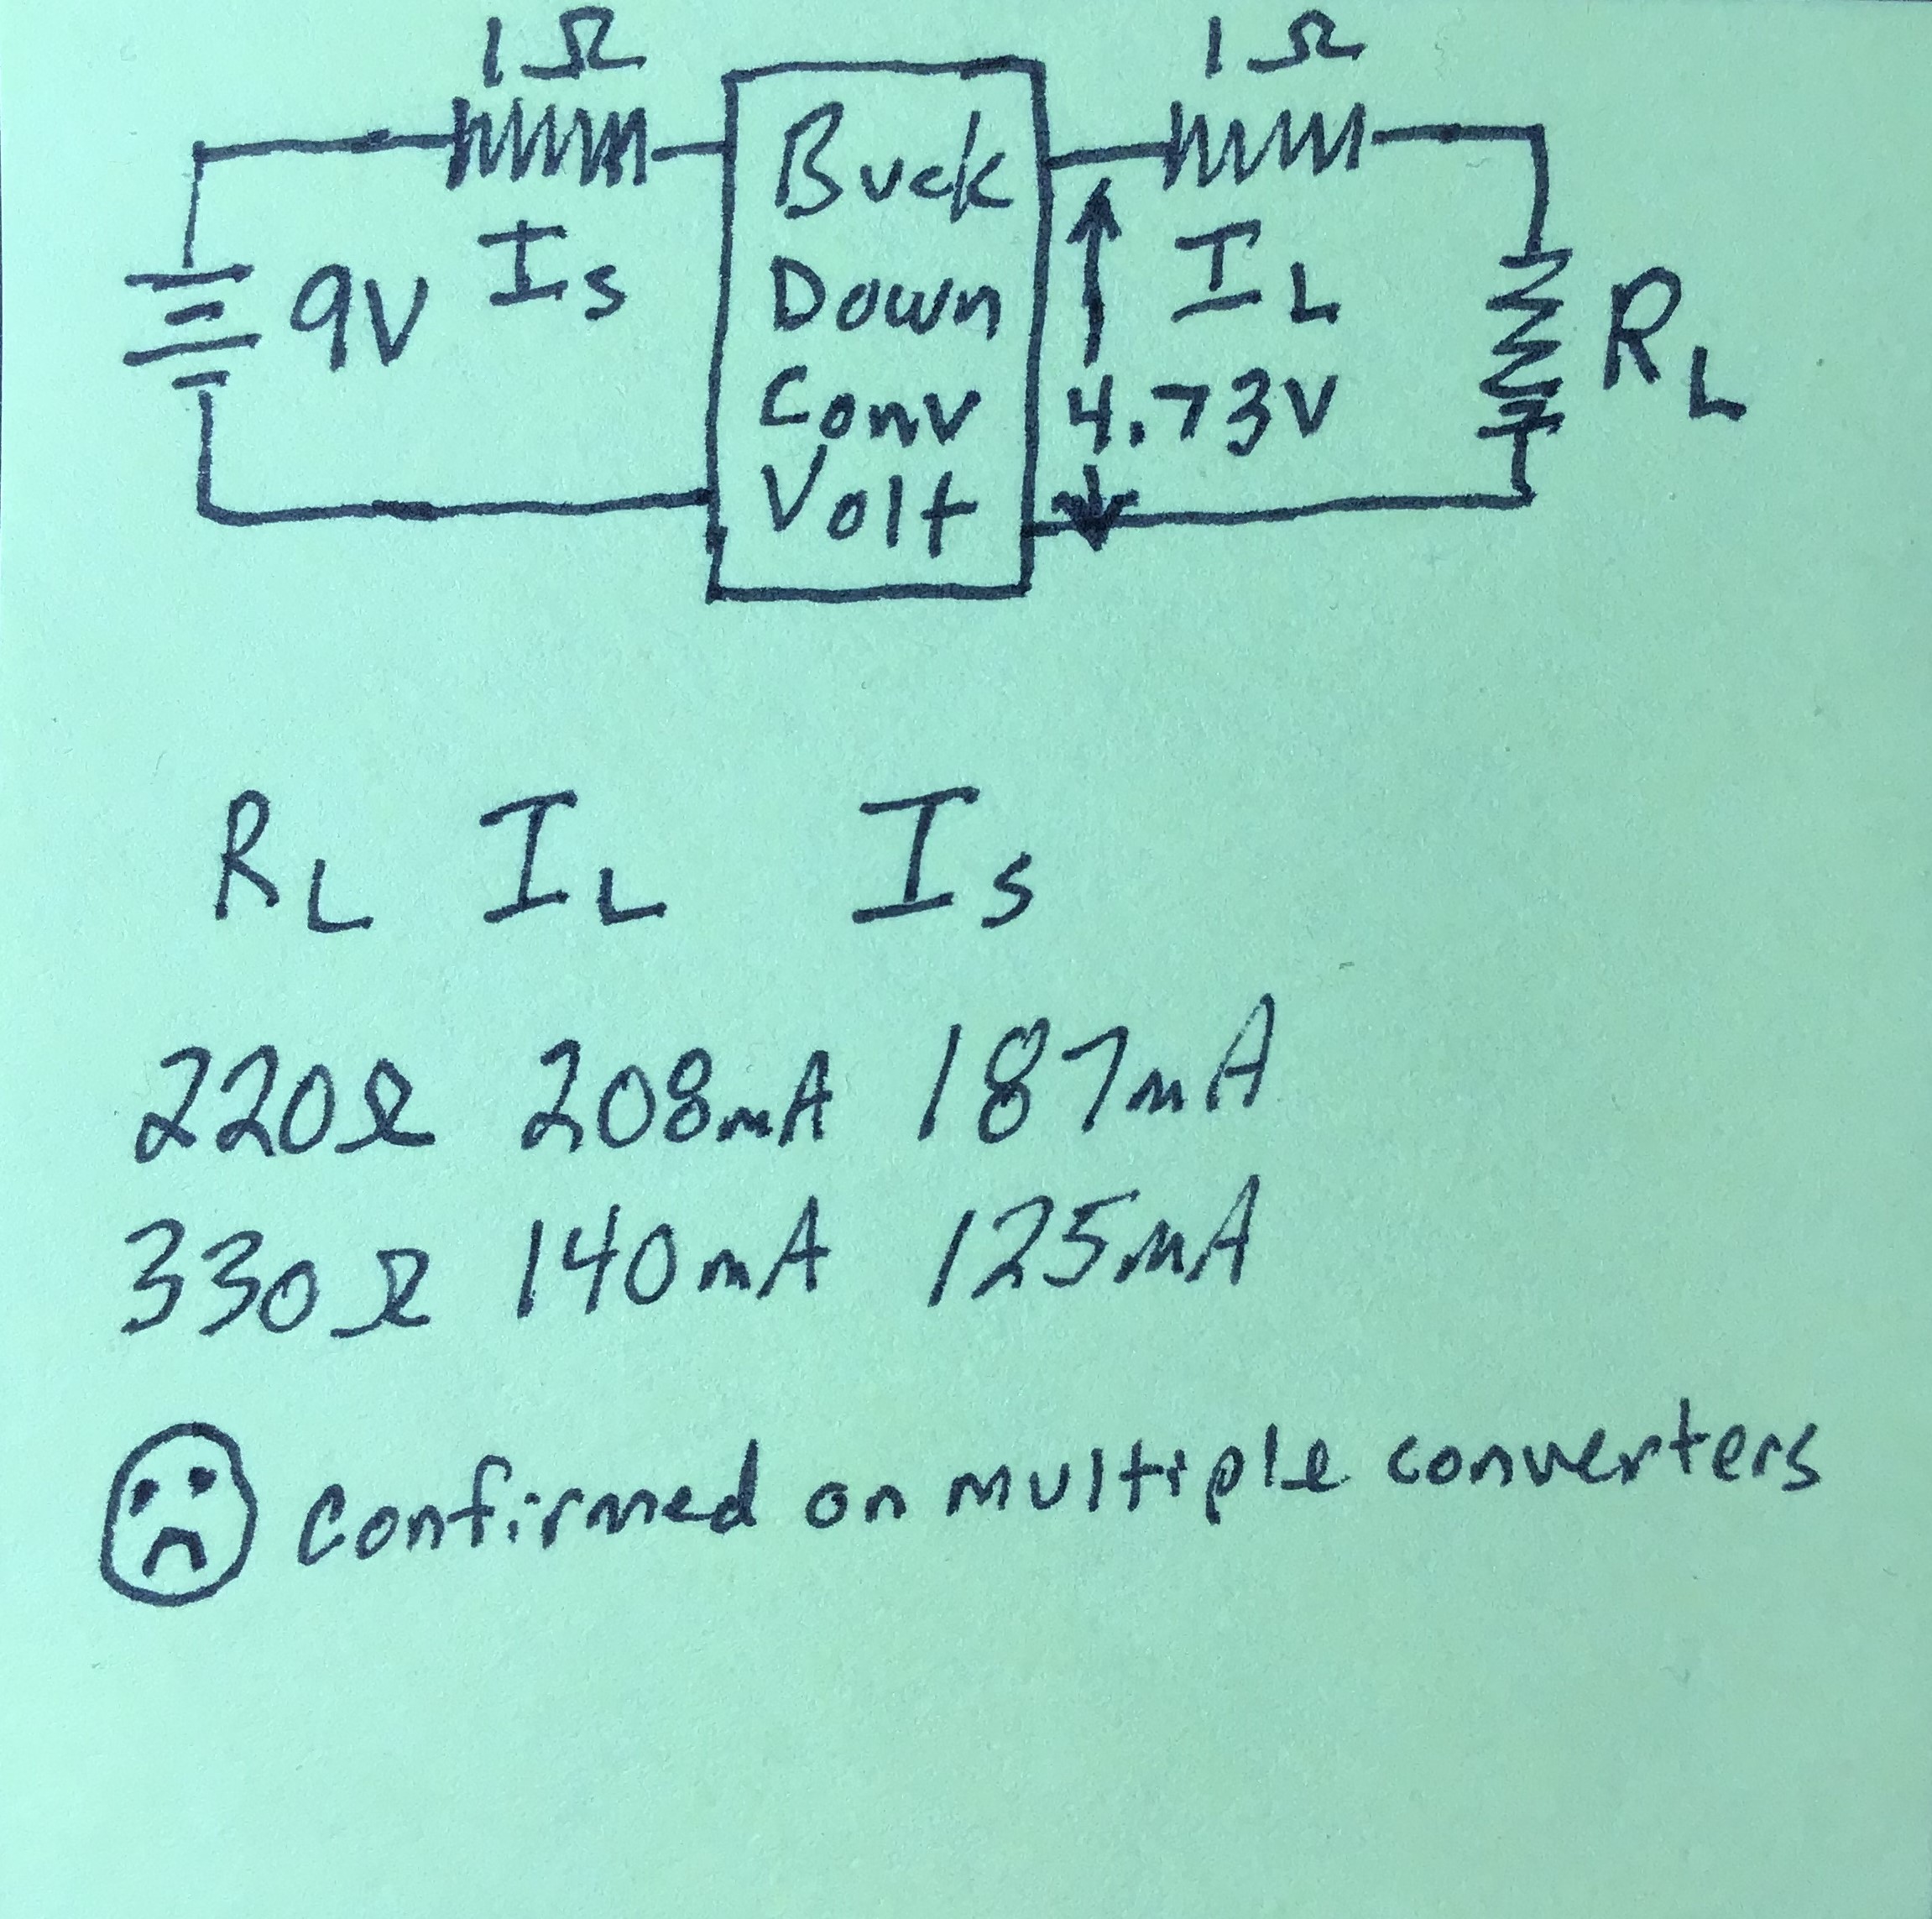 1Ω 1Ω
9V Is Buck Down Conv Volt 4.73V IL RL
RL IL Is
220Ω 208mA 187mA
330Ω 140mA 125mA
confirmed on multiple converters